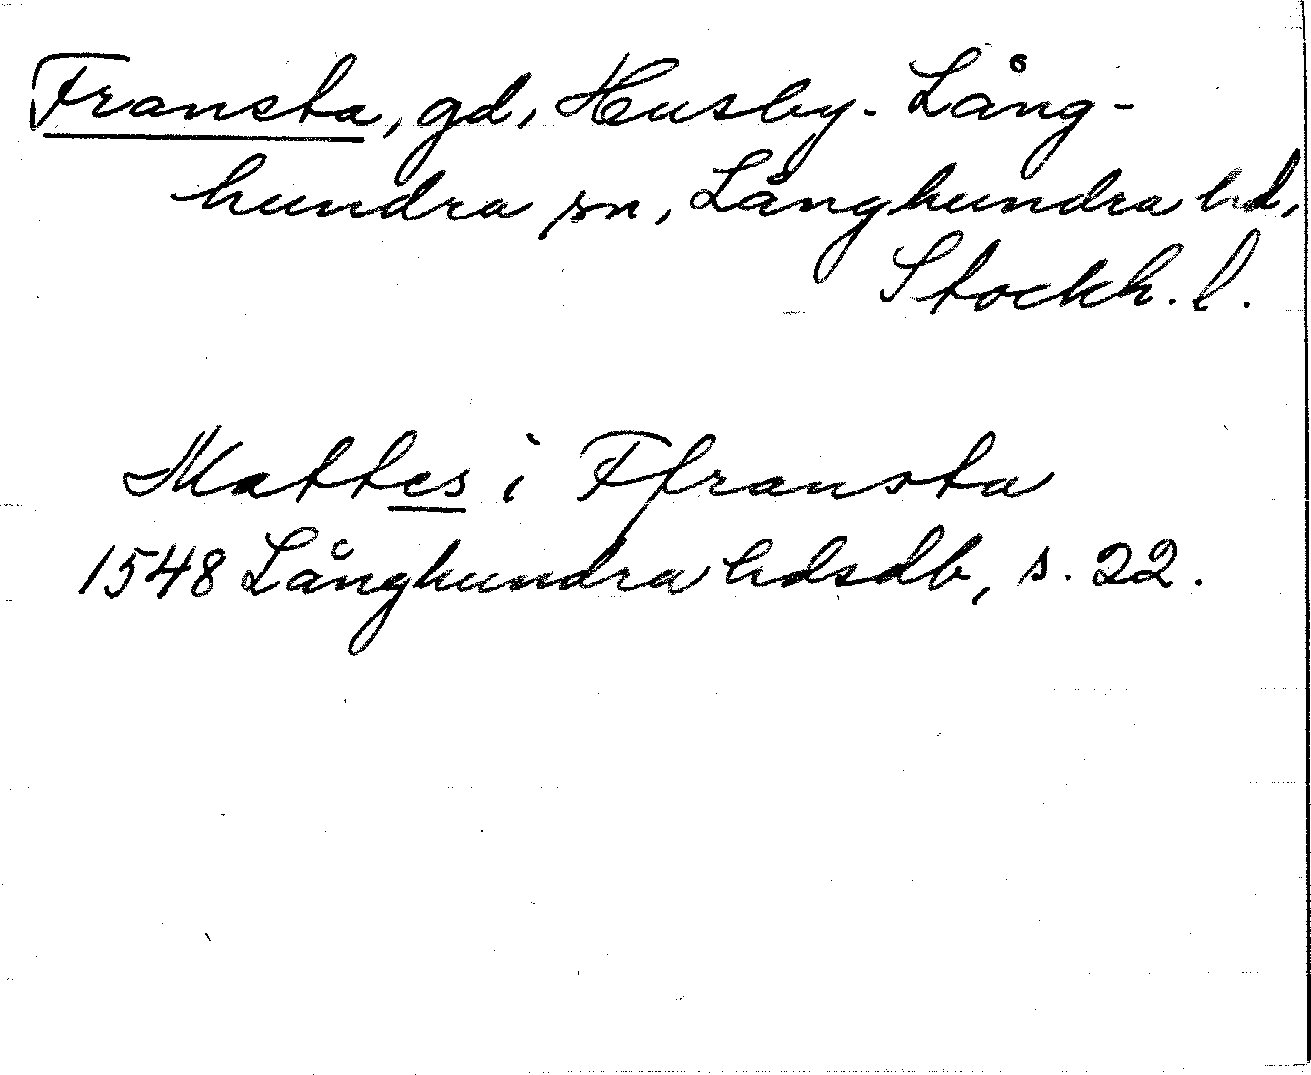 Fransta, gd, Husby-Lång-
hundra sn, Långhundra hd,
Stockh. l.
Mattes i Ffransta
1548 Långhundra hdsdb, s. 22.